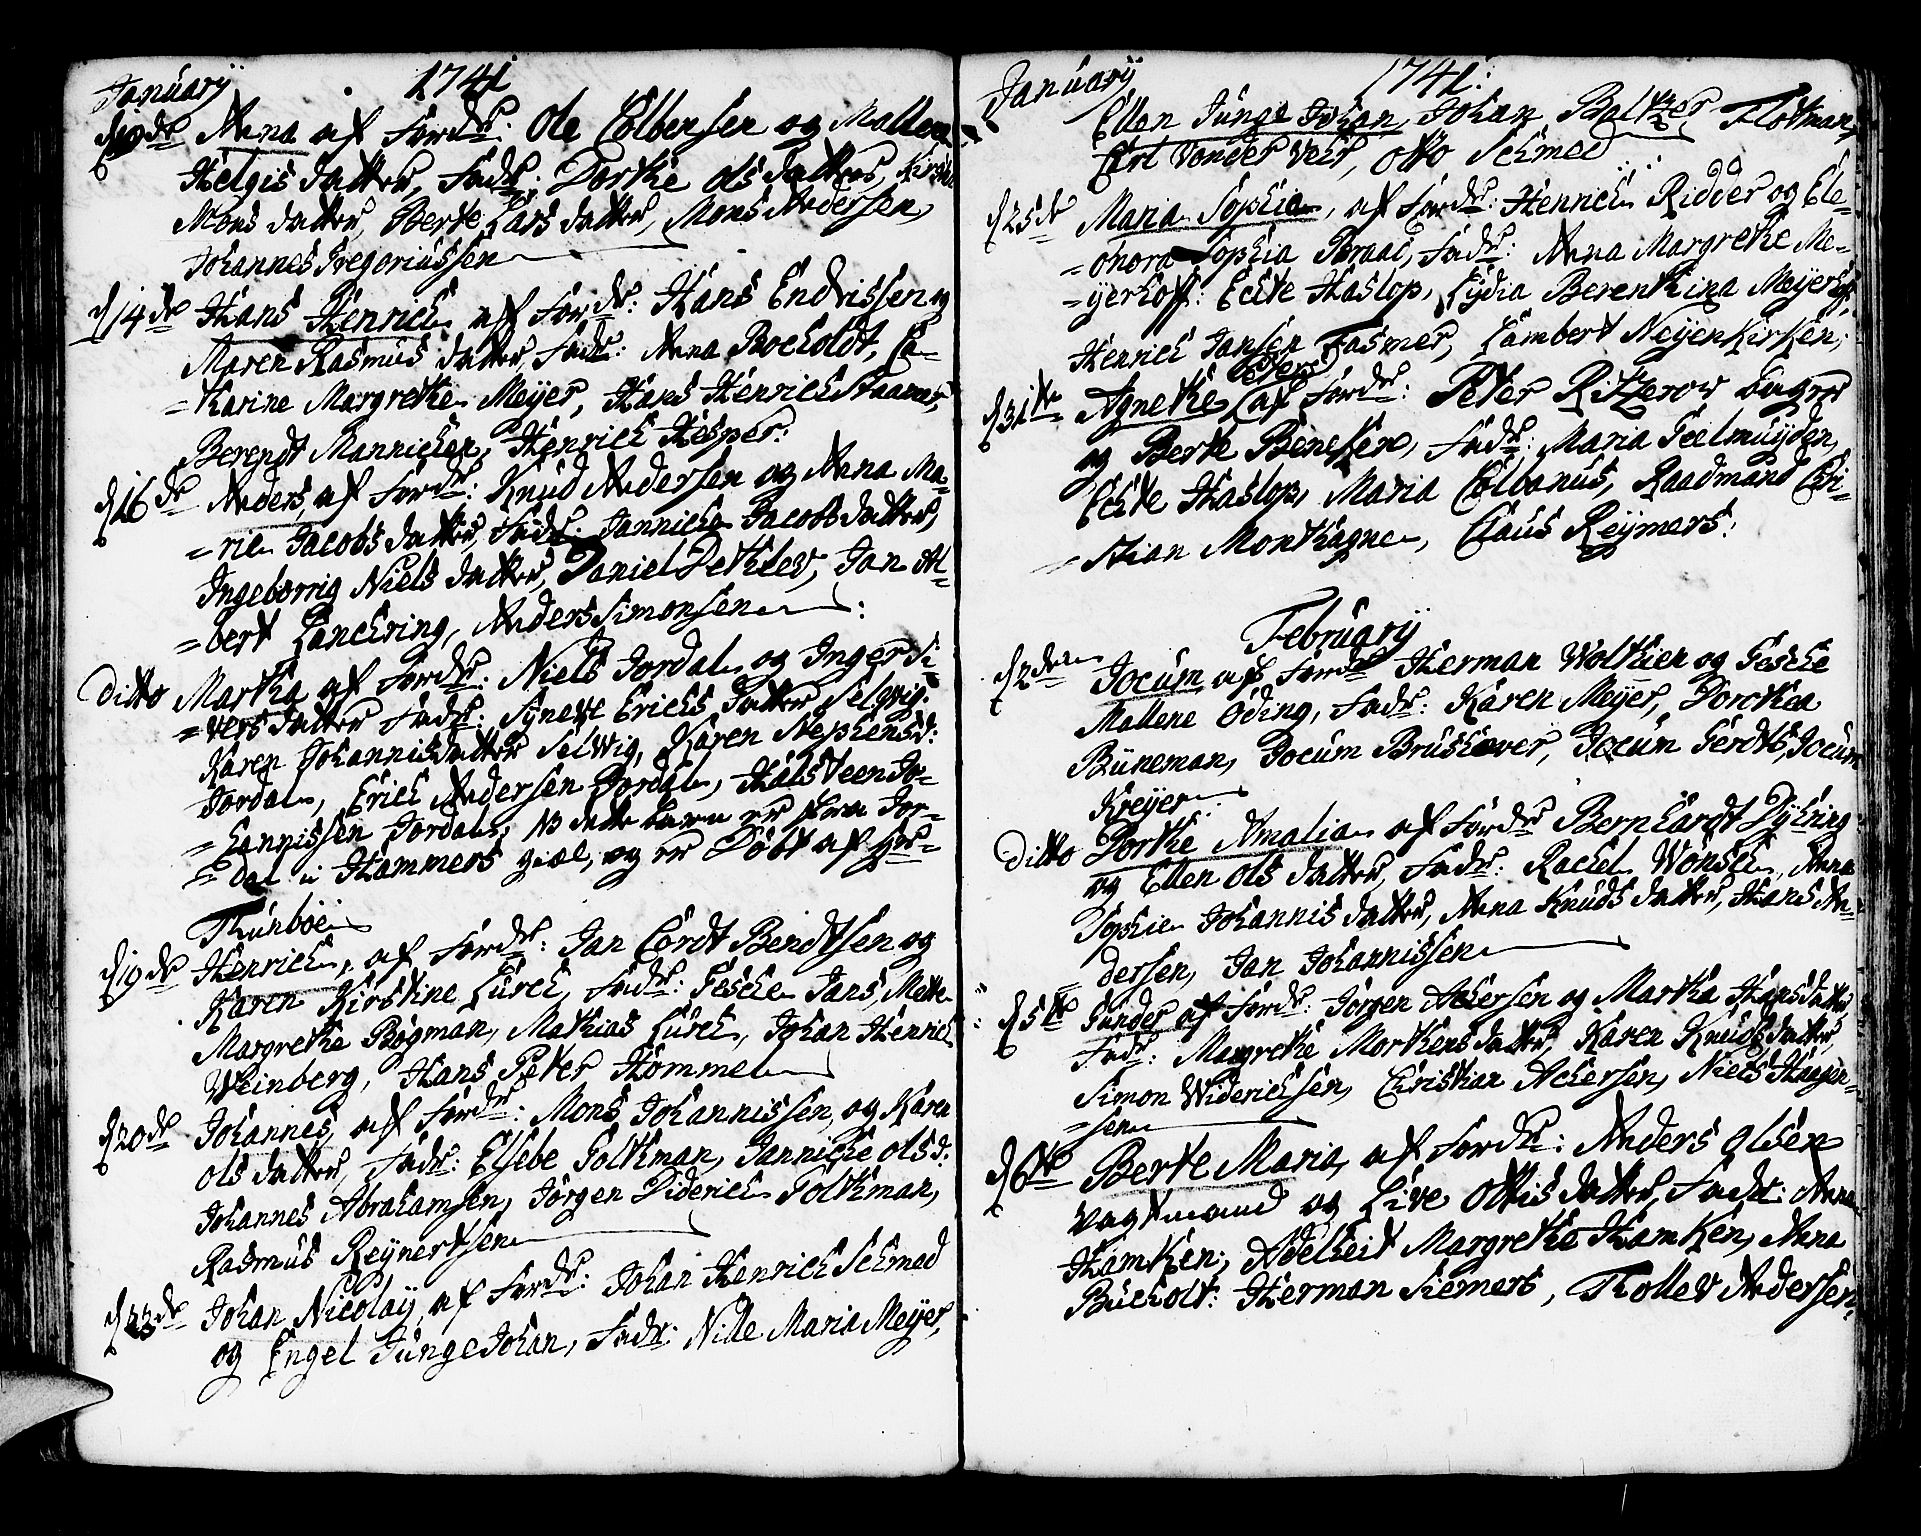 Januarÿ 1741
d 10de Anna af Fordr: Ole Colbensen og Mallene
Helgis datter, Fadr: Dorthe ols datter, Kirst
Mons datter, Berte Lars datter, Mons Andersen,
Johannes Gregoriussen
d 14de Hans Henrich af Fordr: Hans Endrissen og
Maren Rasmus datter, Fadr: Anna Bocholdt, Ca-
=tharine Margrethe Meÿer, Hans Henrich
Berendt Mannichen, Henrich Hesper:
d 16de Anders, af Fordr: Knud Andersen og Anna Ma-
=rie Jacobs datter, Fadr: Jannicke Jacobs datter,
Ingeborrig Niels datter, Daniel Dethlev, Jan Al-
=bert Lanchring, Anders Simonsen:
Ditto Martha af Fordr: Niels Jordal og Inger Si-
=vers datter Fadr: Synneve Erichs datter Selvig.
Karen Johannis datter Selwig, Karen Nephensd:
Jordal, Erich Andersen Jordal, Halsteen Jo-
=hannissen Jordal, NB dette barn er fra Jor-
=dal i Hammers giæl, og er Döbt af Hr:
Thunboe
d 19de Henrich, af Fordr: Jan Cordt Bendtsen og
Karen Kirstine Lürch, Fadr: Gesche Jans, Mette
Margrethe Bögman, Mathias Lürch, Johan Henrich
Weinberg, Hans Peter Hommel
d 20de Johannes, af Fordr: Mons Johannissen, og Karen
Ols datter, Fadr: Elsebe Foltman, Jannicke Ols d:
Johannes Abrahamsen, Jörgen Diderich Foltman,
Rasmus Reÿnertsen
d 23de Johan Nicolaÿ, af Fordr: Johan Henrich Schmed
og Engel Junge Johan, Fadr: Nille Maria Meÿer,
Januarÿ 1741:
Ellen Junge Johan, Johan Baltzer Flotman,
Carl Vonder Vehr, Otto Schmed
d 25de Maria Sophia, af Fordr: Henrich Ridder og Ele-
=onora Sophia Braad, Fadr: Anna Margrethe Me-
=ÿerhoff: Ecke Haslop, Lÿdia Berenthina Meÿerhoff,
Henrich Jansen Fasmer, Lambert Neÿenkirken,
d 31te Agnethe af Fordr: Peter Ritzerow bager
og Berte Beneken, Fadr: Maria Geelmuÿden,
Ecke Haslop, Maria Colbanus, Raadmand Chri-
=stian Monthagne, Claus Reÿmers:
Februarÿ
d 2den Jocum af Fordr Herman Wolthien og Gesche
Mallene Öding, Fadr: Karen Meÿer, Dorothea
Büneman, Jocum Brushover, Jocum Gerdts, Jocum
Kreÿer
ditto Dorthe Amalia af Fordr Bernhardt Dÿhring
og Ellen Ols datter, Fadr: Rachel Wönsche, Anna
Sophie Johannis datter, Anna Knuds datter, Hans An-
dersen, Jan Johannissen
d 5te Gunder af Fordr: Jörgen Achersen og Martha Hans datter,
Fadr: Margrethe Morthens datter, Karen Knuds datter,
Simon Widerichsen, Christian Achersen, Niels Haagen-
=sen
d 6te Berte Maria, af Fordr: Anders Olsen
vagtmand og Live Ottis datter, Fadr: Anna
Hamken, Adelheit Margretha Hamken, Anna
Bücholt: Herman Siemers, Thollev Andersen,